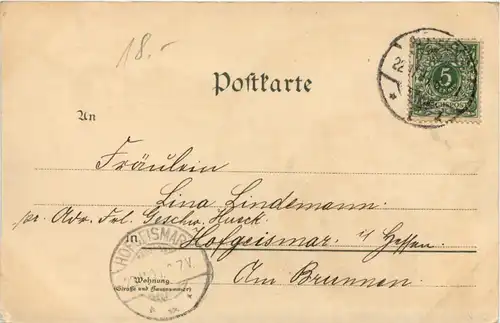 18.-
Postkarte
5
22
An
Fräulein
Lina Lindemann.
pr. Adr. Frl. Geschw. Huck.
in
Hofgeismar. i/ Hessen
HOFGEISMAR
7V.
Wohnung
(Straße und Hausnummer)
Am Brunnen